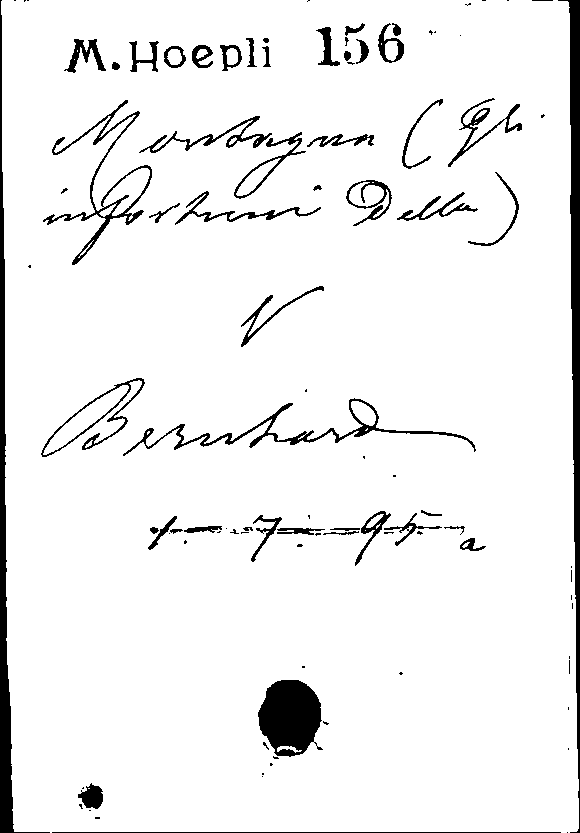 M. Hoepli 156
Montagna (Gli
infortuni della)
V
Bernhard
1. 7. 95. a